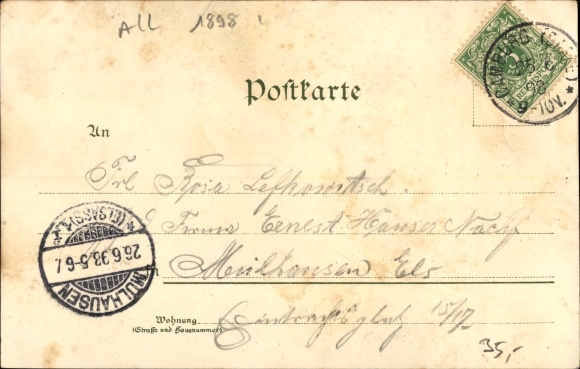 All 1898
Postkarte
An
Frl Rosa Lefkowitsch
Firma Ernest Hanser Nachf
in
Mülhausen Els
Wohnung
(Straße und Hausnummer)
15/17
35,-
MÜLHAUSEN
(ELSASS)
26.6.98.5-6